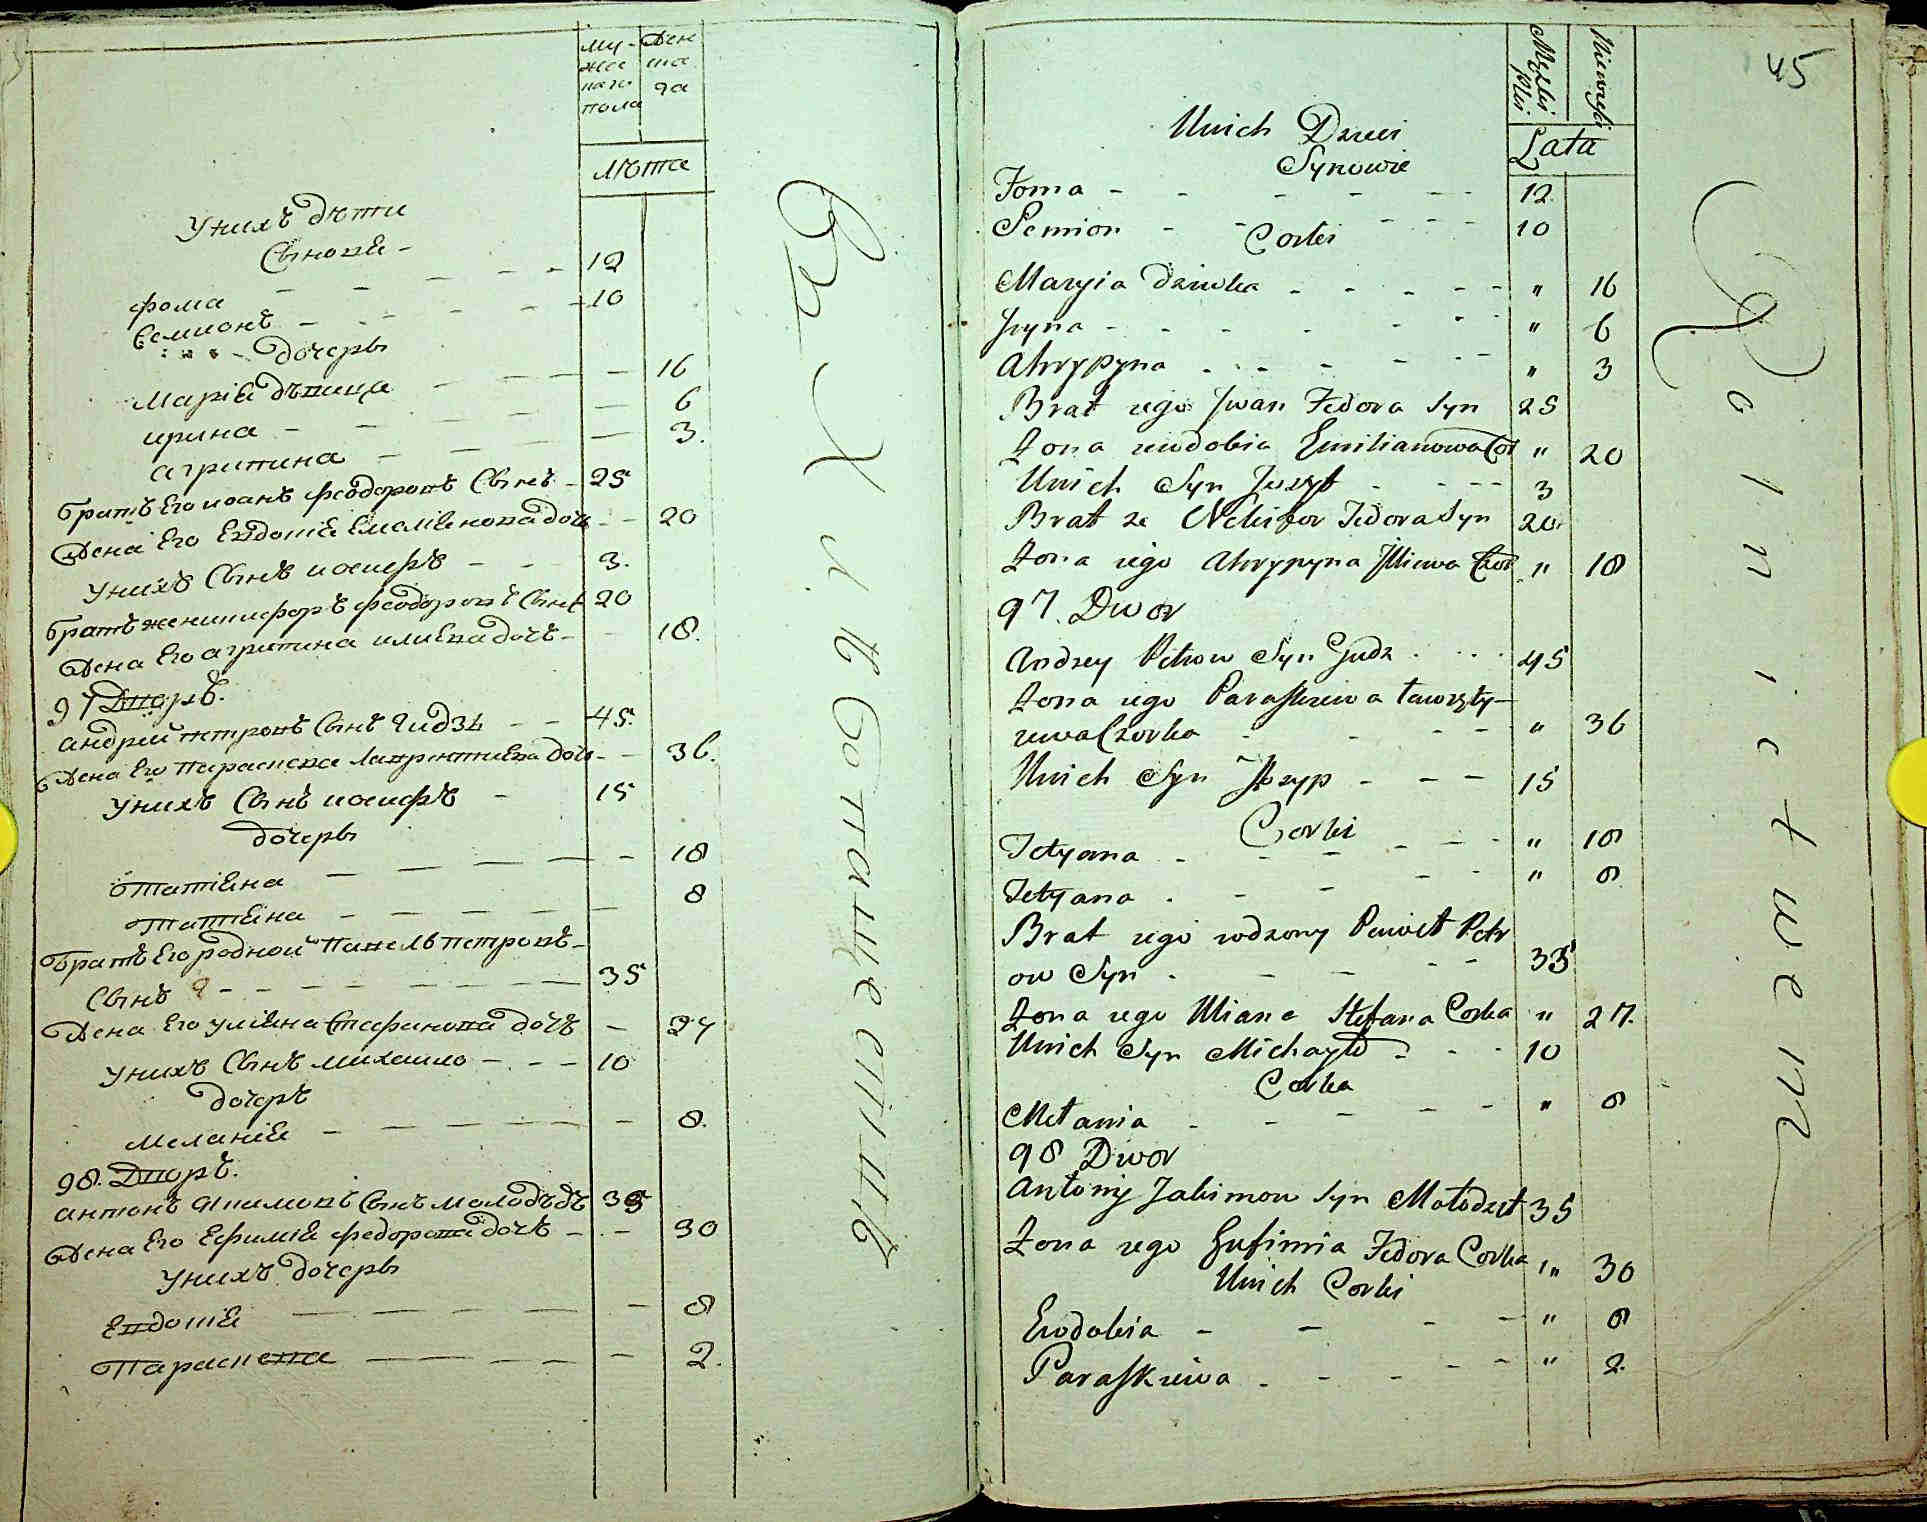 му-
жес
каго
пола
жен
ска
га
лѣта
Унихъ дѣти
Сыновѣ -
фома 12
Семионъ 10
дочеры
Марія дѣвица 16
ирина - 6
агрипина 3.
братъ Его иоанъ феодоровъ Сынъ - 25
жена Его Евдокія Емеліенова дочь 20
Унихъ Сынъ иосифъ 3.
братъ же никифоръ феодоровъ Сынъ 20
жена Его агрипина илиева дочъ - 18.
97 Дворъ.
андрей петровъ Сынъ Гидзь 45.
жена Его параскева лаврентиева дочь 36.
Унихъ Сынъ иосифъ 15
дочеры
татіяна 18
татіяна 8
братъ Его родной павелъ петровъ -
Сынъ 35
жена Его уліяна Стефанова дочъ 27
Унихъ Сынъ михаило 10
дочеръ
меланія 8.
98. Дворъ.
антонъ якимовъ Сынъ молодъдъ 35
жена Его Ефимія федорова дочъ 30
Унихъ дочеры
Евдокія 8
параскева 2.
45
Męzki
płci
Niewiesci
Lata
Unich Dzieci
Synowie
Foma 12
Semion 10
Corki
Maryia dziewka " 16
Jryna " 6
Ahrypyna " 3
Brat iego Jwan Fedora Syn 25
Zona Ewdokia Emilianowa Cor " 20
Unich Syn Juzyf 3
Brat ze Nekifor Fedora Syn 20
Zona iego Ahrypyna Jlliewa Cor " 18
97. Dwor
Andzey Petrow Syn Gudz 45
Zona iego Paraskiewa Ławrzty-
iewa Czorka " 36
Unich Syn Jozyp 15
Corki
Tetyana " 18
Tetyana " 8
Brat iego rodzony Paweł Petr
ow Syn 35
Zona iego Uliana Stefana Corka " 27.
Unich Syn Michayło 10
Corka
Mełania " 8
98 Dwor
Antoniy Jakimow Syn Mołodzet 35
Zona iego Eufimia Fedora Corka " 30
Unich Corki
Ewdokia " 8
Paraskiewa " 2.